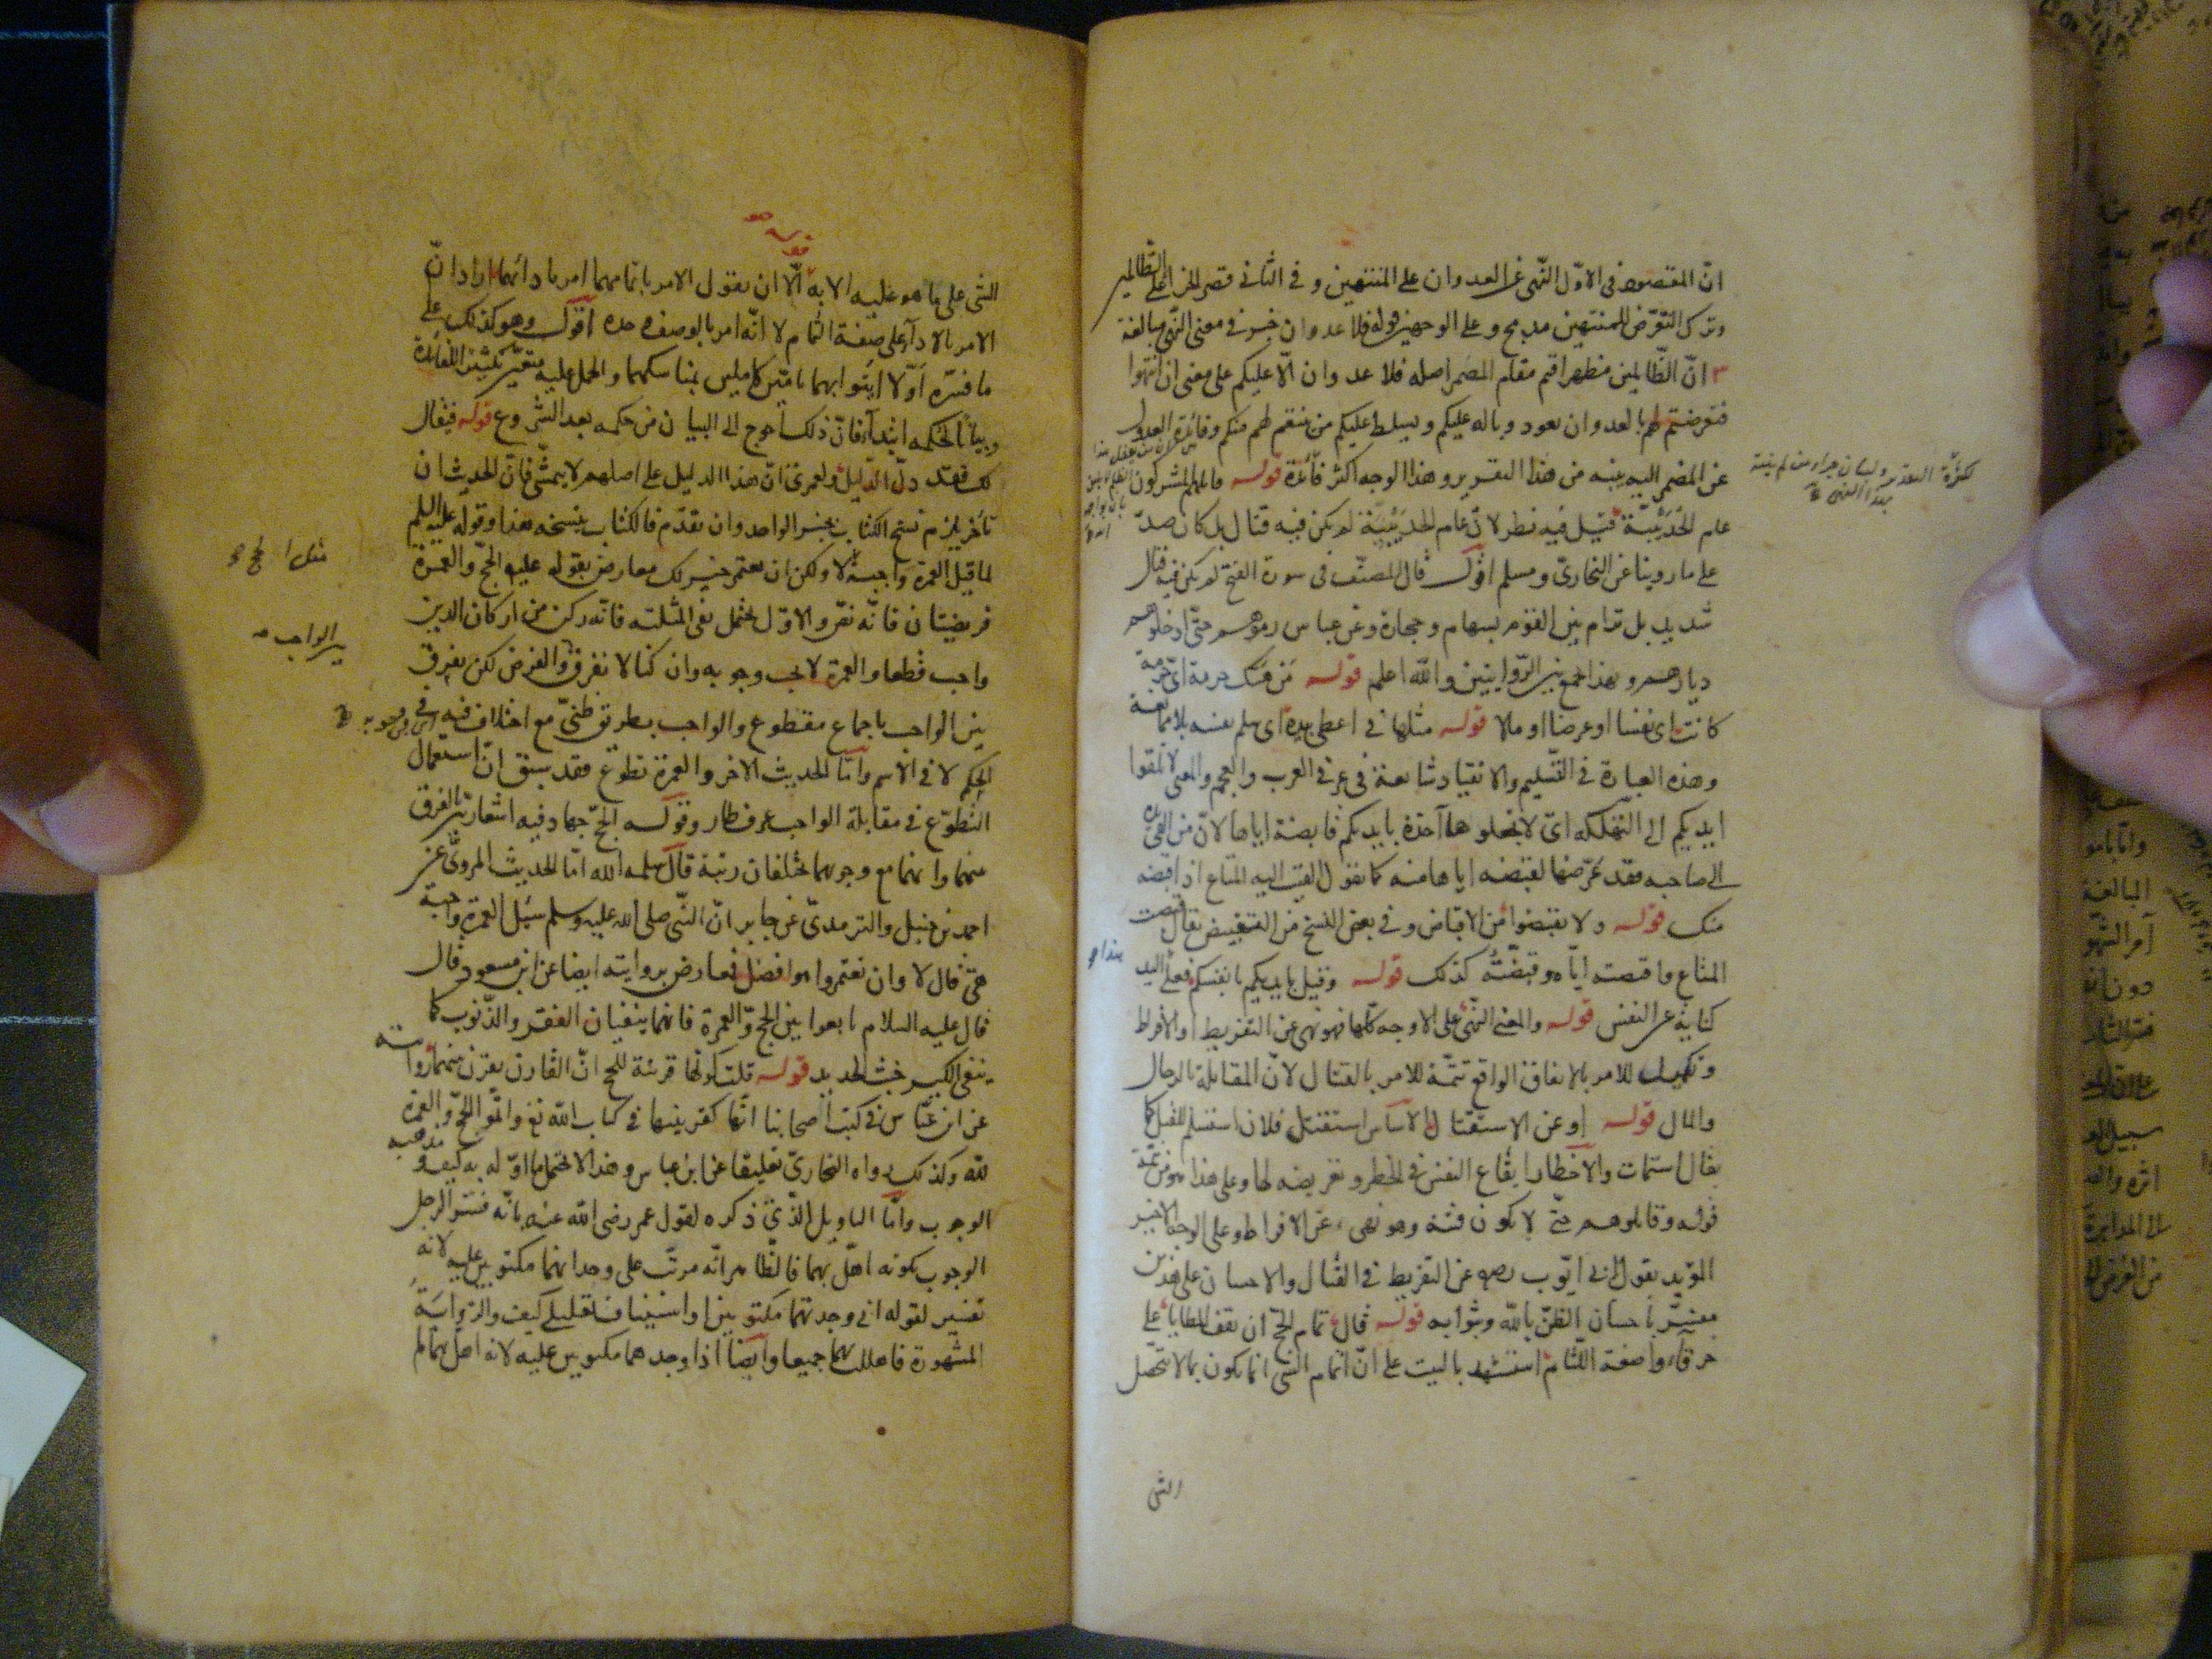 انّ المقصود فى الاوّل النّهى عن العدوان على المنتهين وفى الثانى قصر الجزاء على الظالمين
وترك التعرّض للمنتهين مدمج وعلى الوجهين قوله فلا عدوان خبر فى معنى النّهى مبالغة
٣ انّ الظّالمين مظهر اقيم مقام المضمر اصله فلا عدوان الّا عليكم على معنى ان انتهوا
فتعرضتم لهم بالعدوان يعود وباله عليكم ويسلط عليكم من ينتقم لهم منكم وفائدة العدول
عن المضمر اليه ينبه من هذا التقرير وهذا الوجه اكثر فائدة قوله قاتلهم المشركون
عام الحديبيّة قيل فيه نظر لانّ عام الحديبية لم يكن فيه قتال بل كان صدّ
على ما روينا عن البخارىّ ومسلم اقول قال المصنّف فى سورة الفتح لم يكن فيه قتال
شديد بل ترام بين القوم بسهام وحجارة وعن عباس رموهم حتّى ادخلوهم
ديارهم وبهذا جمع بين الرّوايتين والله اعلم قوله من هتك حرمة اىّ حرمة
كانت اى نفسا او عرضا او مالا قوله مثلها فى اعطى بيده اى سلم نفسه بلا ممانعة
وهذه العبارة فى التّسليم والانقياد شايعة فى عرف العرب والعجم والمعنى لا تلقوا
ايديكم الى التّهلكه اى لا تجعلوها آخذة بايديكم قابضة اياها لانّ من القى يده
الى صاحبه فقد عرّضها لقبضه اياها منه كما تقول القيت اليه المتاع اذا قبضه
منك قوله ولا تقبضوا من الاقباض وفى بعض النسخ من التقبيض يقال قبضت
المتاع واقبضته ايّاه وقبّضته كذلك قوله وقيل بايديكم بانفسكم فعلى اليد
كناية عن النفس قوله والمعنى النّهى على الاوجه كلّها فهو نهى عن التفريط او الافراط
وتكميل للامر بالانفاق الواقع تتمّة للامر بالقتال لانّ المقابلة بالرجال
والمال قوله او عن الاستقتال الاساس استقتل فلان استسلم للقتل كما
يقال استمات والاخطار ايقاع النفس فى الخطر وتعريضه لها وعلى هذا هو من تتمّة
قوله وقاتلوهم حتّى لا تكون فتنة وهو نهى عن الافراط وعلى الوجه الاخير
المؤيد بقول ابى ايّوب رضه عن التفريط فى القتال والاحسان على هذين
مفسّر باحسان الظنّ بالله وبثوابه قوله قال تمام الحجّ ان تقف المطايا على
خرقاء واضعة اللثام استشهد بالبيت على انّ اتمام الشى انما يكون بما لا يتحصّل
الشى
الشى على ما هو عليه الا به الّا ان يقول الامر باتمامهما امر بادائهما اراد انّ
الامر بالادآء على صفة التمام لا انّه امر بالوصف وحده اقول وهو كذلك على
ما فسّره اوّلا ايتوا بهما تامّين كاملين بمناسكهما والحمل عليه متعيّن تكثيرا للفائدة
وبيانا لحكمه ابتدآء فانّ ذلك احوج الى البيان من حكمه بعد الشروع قوله فيقال
لك فقد دلّ الدّليل ولعمرى انّ هذا الدليل على اصلهم لا يتمشّى فانّ الحديث ان
تأخر يلزم نسخ الكتاب بخبر الواحد وان تقدّم فالكتاب ينسخه هذا وقوله عليه السلم
لما قيل العمرة واجبة لا ولكن ان تعتمر خير لك معارض بقوله عليه الحجّ والعمرة
فريضتان فانّه نصّ والاوّل يحتمل نفى المثلته فانّه ركن من اركان الدين
واجب قطعا والعمرة لا يجب وجوبه وان كنا لا نفرق والفرض لكن نفرق
بين الواجب باجماع مقطوع والواجب بطريق ظنّى مع اختلاف فيه فى
الحكم لا فى الاسم وامّا الحديث الاخر والعمرة تطوّع فقد سبق انّ استعمال
التطوّع فى مقابلة الواجب عرف طار وقوله الحجّ جهاد فيه اشعار بالفرق
بينهما وانهما مع وجوبهما مختلفان رتبة قال سلمه الله امّا الحديث المروىّ عن
احمد بن حنبل والترمذىّ عن جابر انّ النّبى صلى الله عليه وسلم سئل العمرة واجبة
هى قال لا وان تعتمروا هو افضل فمعارض بروايته ايضا عن ابن مسعود قال
قال عليه السلام تابعوا بين الحجّ والعمرة فانهما ينفيان الفقر والذّنوب كما
ينفى الكير خبث الحديد قوله قلت كونها قرينة للحج انّ القارن يقرن بينهما رواية
عن ابن عبّاس فى كتب اصحابنا انّها كقرينتها فى كتاب الله تع واتمّوا الحجّ والعمرة
لله وكذلك رواه البخارىّ تعليقا عن ابن عباس وهذا لا يحتمل ما اوّله به كيف ومذهبه
الوجوب وامّا التاويل الذّى ذكره لقول عمر رضى الله عنه بانّه فسّر الرجل
الوجوب بكونه اهلّ بهما فالظاهر انّه مرتّب على وجدانهما مكتوبين عليه لانه
تفسير لقوله انى وجدتهما مكتوبين او استيناف تعليلى كيف والرّواية
المشهورة فاهللت بهما جميعا وايضا اذا وجدهما مكتوبين عليه لانه اهلّ بهما لم